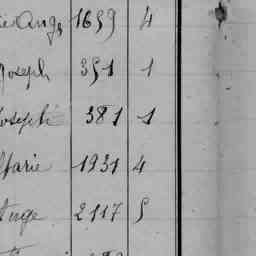 Ang, 1659 4
Joseph 351 1
Joseph 381 1
Marie 1931 4
Ange 2117 5